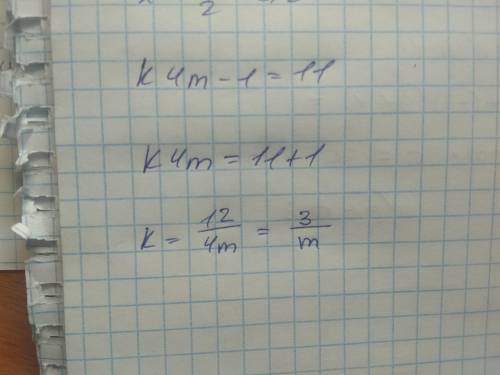 2
k 4m - 1 = 11
k 4m = 11 + 1
k = 12/4m = 3/m